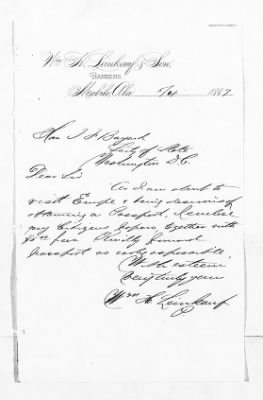 Wm H. Leinkauf & Son.
BANKERS.
Mobile, Ala. 1887
Hon. T F Bayard
Secty of State
Washington D.C.
Dear Sir
As I am about to
visit Europe & being desirous of
obtaining a Passport, I enclose
my Citizens papers together with
fees. Kindly forward
passport as early as possible
With esteem
Very truly yours
Wm H. Leinkauf